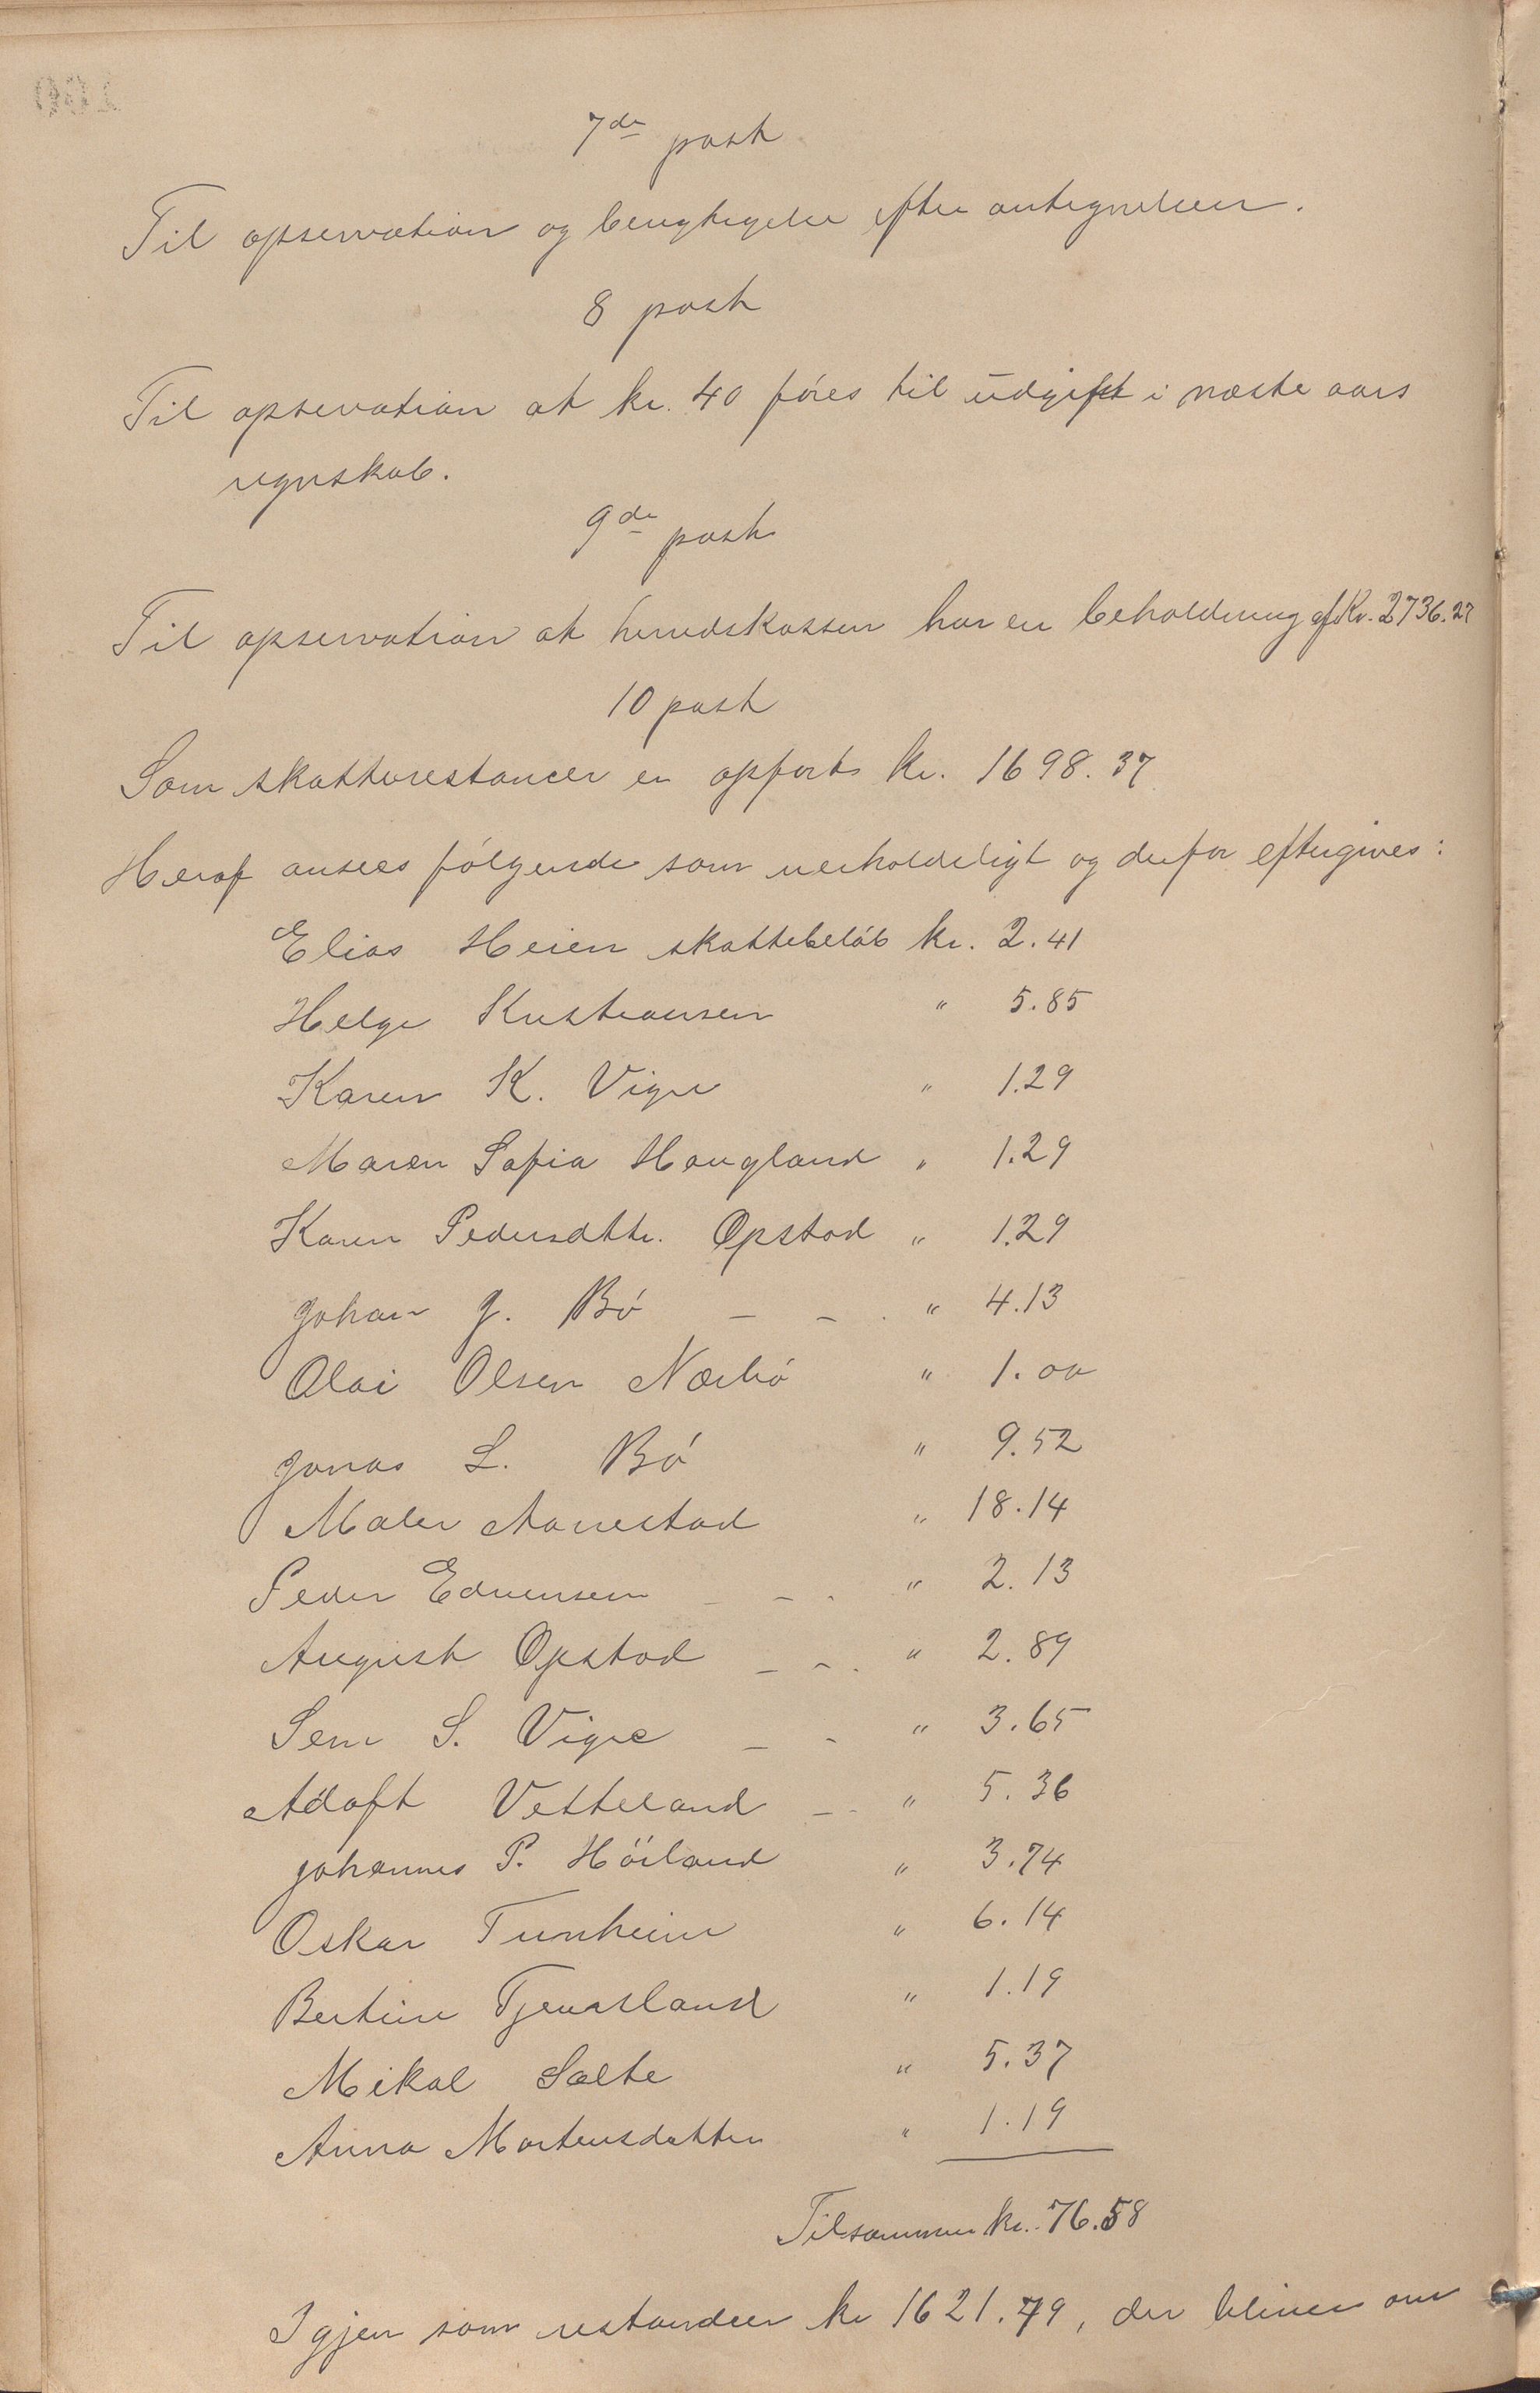 7de post
Til opservation og benygtigelse efter antegnelsen.
8 post
Til opservation at kr. 40 föres til udgift i næste aars
regnskab.
9de post
Til opservation at herredskassen har en beholdning af Kr. 2736.27
10 post
Som skatterestancer er opförts kr. 1698.37
Heraf ansees fölgende som uerholdeligt og derfor eftergives:
Elias Heien skattebelöb kr. 2.41
Helge Kristiansen " 5.85
Karen K. Vigre " 1.29
Maren Sofia Haugland " 1.29
Karen Pedersdtr. Opstad " 1.29
Johan J. Bö - - . " 4.13
Olai Olsen Nærbö " 1.00
Jonas L. Bö " 9.52
Maler Aanestad " 18.14
Peder Edvensen - - . " 2.13
August Opstad - - . " 2.89
Sem S. Vigre - - " 3.65
Adolft Vetteland - - " 5.36
Johannes P. Höiland " 3.74
Oskar Tunheim " 6.14
Bertine Tjensland " 1.19
Mikal Salte " 5.37
Anna Martensdatter " 1.19
Tilsammen kr. 76.58
Igjen som restandeer kr 1621.79, der bliver om